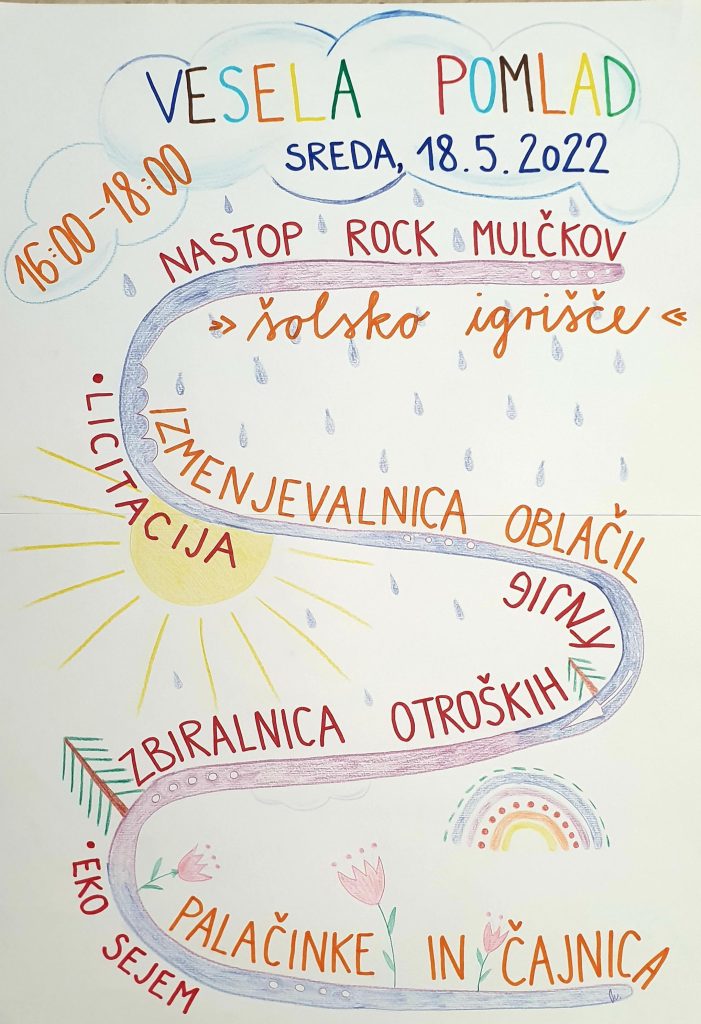 VESELA POMLAD
SREDA, 18.5.2022
16:00-18:00
NASTOP ROCK MULČKOV
» šolsko igrišče «
• LICITACIJA
IZMENJEVALNICA OBLAČIL
ZBIRALNICA OTROŠKIH KNJIG
• EKO SEJEM
PALAČINKE IN ČAJNICA